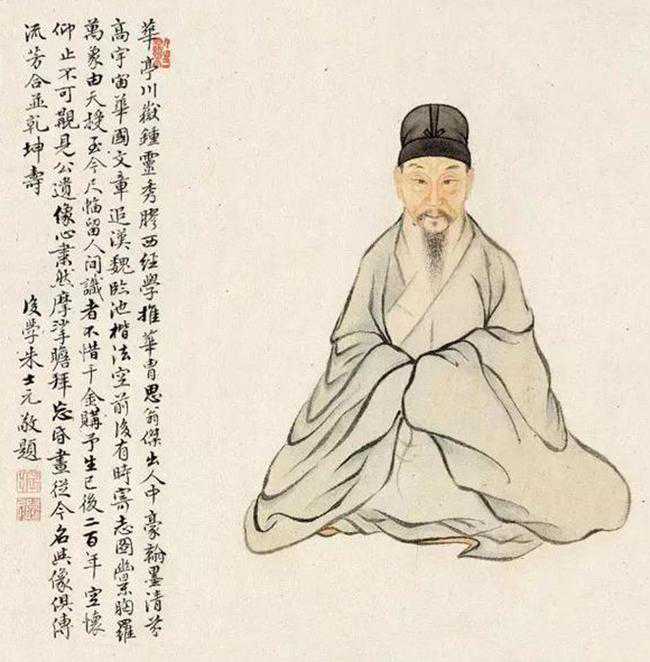 華亭川嶽鍾靈秀膠西經學推華冑思翁傑出人中豪翰墨清芬
高宇宙華國文章追漢魏臨池楷法空前後有時寄志圖胸羅
萬象由天授至今尺幅留人間識者不惜千金購予生已後二百年空懷
仰止不可覯見公遺像心肅然摩挲瞻拜忘昏晝從今名與像俱傳
流芳合並乾坤壽
後學朱士元敬題